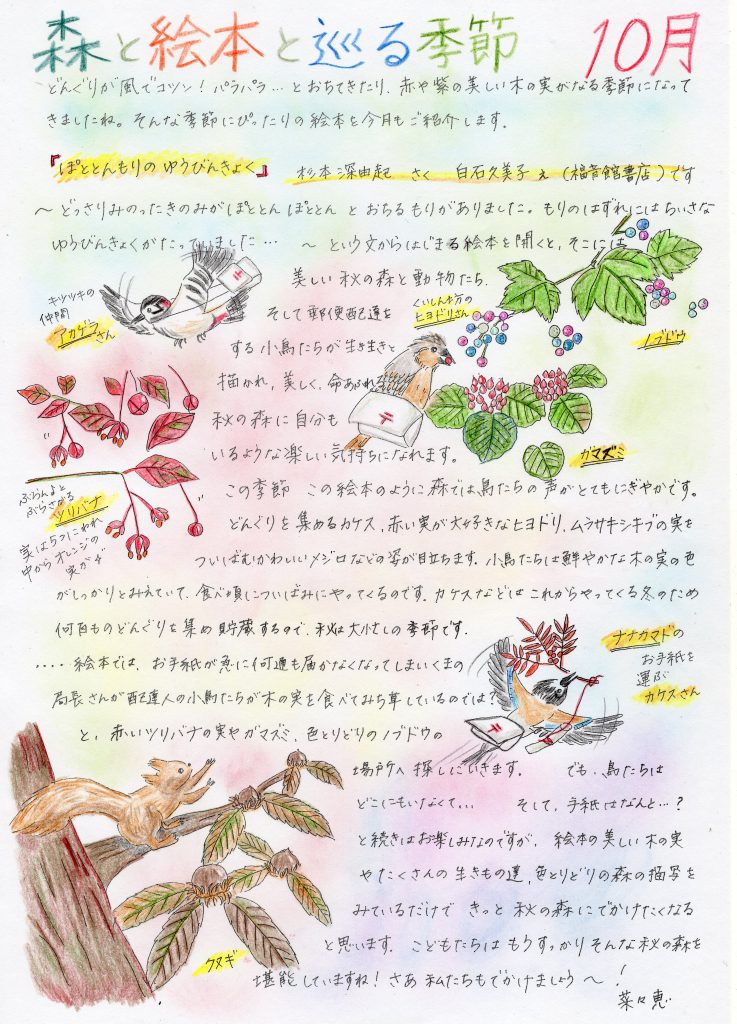 森と絵本と巡る季節 10月
どんぐりが風でコツン！パラパラ…とおちてきたり、赤や紫の美しい木の実がなる季節になって
きましたね。そんな季節にぴったりの絵本を今月もご紹介します。
『ぽととんもりのゆうびんきょく』 杉本深由起 さく 白石久美子 え (福音館書店)です
～ どっさりみのったきのみがぽととんぽととん とおちるもりがありました。もりのはずれにはちいさな
ゆうびんきょくがたっていました… ～ という文からはじまる絵本を開くと、そこには
美しい秋の森と動物たち、
そして郵便配達を
する小鳥たちが生き生きと
描かれ、美しく、命あふれる
秋の森に自分も
いるような楽しい気持ちになれます。
キツツキの
仲間
アカゲラ
さん
くいしん坊の
ヒヨドリさん
ノブドウ
ガマズミ
ぶらんよと
ぶらさがる
ツリバナ
実は5つにわれ
中からオレンジの
実が
この季節 この絵本のように森では鳥たちの声がとてもにぎやかです。
どんぐりを集めるカケス、赤い実が大好きなヒヨドリ、ムラサキシキブの実を
ついばむかわいいメジロなどの姿が目立ちます。小鳥たちは鮮やかな木の実の色
がしっかりとみえていて、食べ頃についばみにやってくるのです。カケスなどはこれからやってくる冬のため
何百ものどんぐりを集め貯蔵するので、秋は大忙しの季節です。
‥‥絵本では、お手紙が急に何通も届かなくなってしまいくまの
局長さんが配達人の小鳥たちが木の実を食べてみち草しているのでは？
と、赤いツリバナの実やガマズミ、色とりどりのノブドウの
場所へ探しにいきます。 でも、鳥たちは
どこにもいなくて… そして、手紙はなんと…？
と続きはお楽しみなのですが、絵本の美しい木の実
やたくさんの生きもの達、色とりどりの森の描写を
みているだけできっと秋の森にでかけたくなる
と思います。こどもたちはもうすっかりそんな秋の森を
堪能していますね！さあ 私たちもでかけましょう～！
ナナカマドの
お手紙を
運ぶ
カケスさん
クヌギ
菜々恵